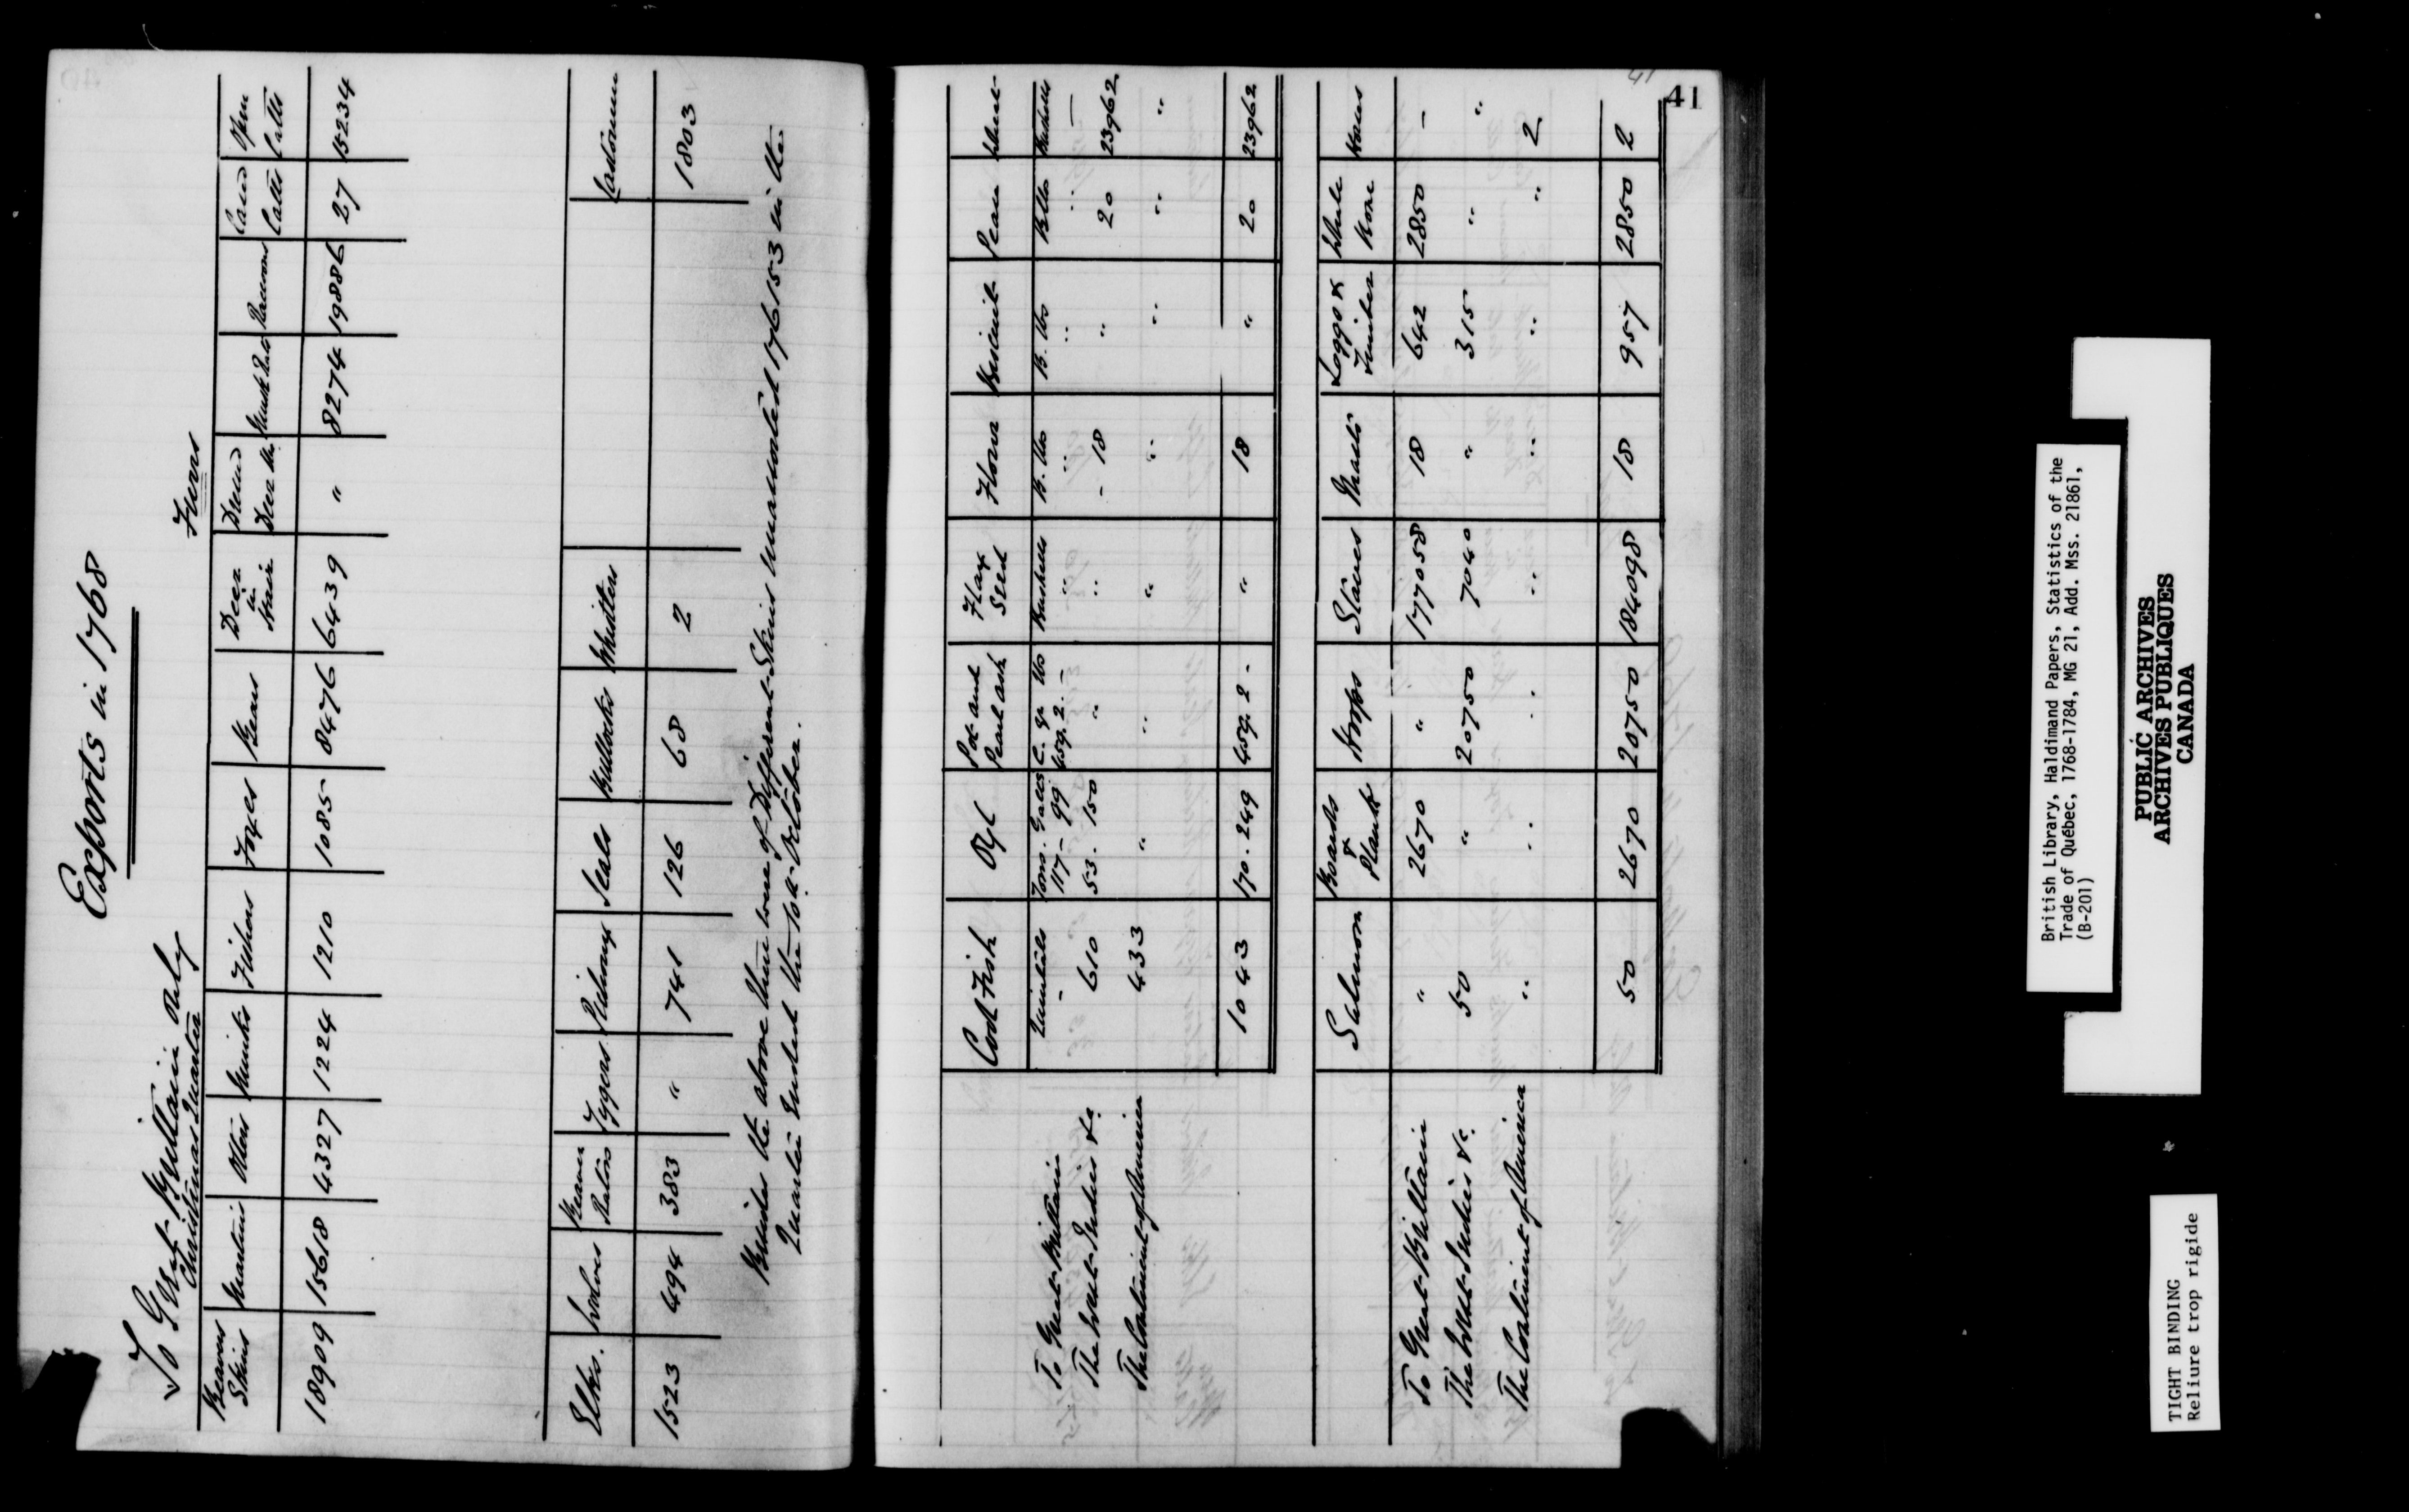 Exports in 1768
To Great Brittain only
Christmas Quarter
Furrs
Beavers Skins | Martins | Otters | Minks | Fishers | Foxes | Bears | Deer in Hair | Dressed Deer | Musk Rats | Racoons | Cased Catts | Open Catts
18909 | 15618 | 4327 | 1224 | 1210 | 1085 | 8476 | 6439 | " | 8274 | 19886 | 27 | 15234
Elks. | Wolves | | Tygers | Pichoux | Seals | Bullocks | Whitters | Cadorus
1523 | 494 | 383 | " | 741 | 126 | 68 | 2 | 1803
Besides the above there were of Different Skins 176153 in the
Quarter Ended the 10th October.
41
41
Cod Fish | Oyl | Pot and Pearl ash | Flax Seed | Flour | Biscuit | Peas | Wheat
Quintals | Tons. Galls | C. qr lbs | Bushells | B. lbs | B. lbs | Bushells
To Great Brittain | - | 117 - 99 | 459. 2. - | " | " | " | " | -
The West Indies &c. | 610 | 53. 150 | " | " | - 18 | " | 20 | 23962
The Continent of America | 433 | " | " | " | " | " | " | "
1043 | 170. 249 | 459. 2 - | " | 18 | " | 20 | 23962
Salmon | Boards & Plank | Hoops | Staves | Masts | Loggs & Timber | Whale Bone | Horses
To Great Brittain | " | 2670 | " | 177058 | 18 | 642 | 2850 | -
The West Indies &c. | 50 | " | 20750 | 7040 | " | 315 | " | "
The Continent of America | " | " | " | " | " | " | " | 2
50 | 2670 | 20750 | 184098 | 18 | 957 | 2850 | 2
British Library, Haldimand Papers, Statistics of the
Trade of Québec, 1768-1784, MG 21, Add. Mss. 21861,
(B-201)
PUBLIC ARCHIVES
ARCHIVES PUBLIQUES
CANADA
TIGHT BINDING
Reliure trop rigide